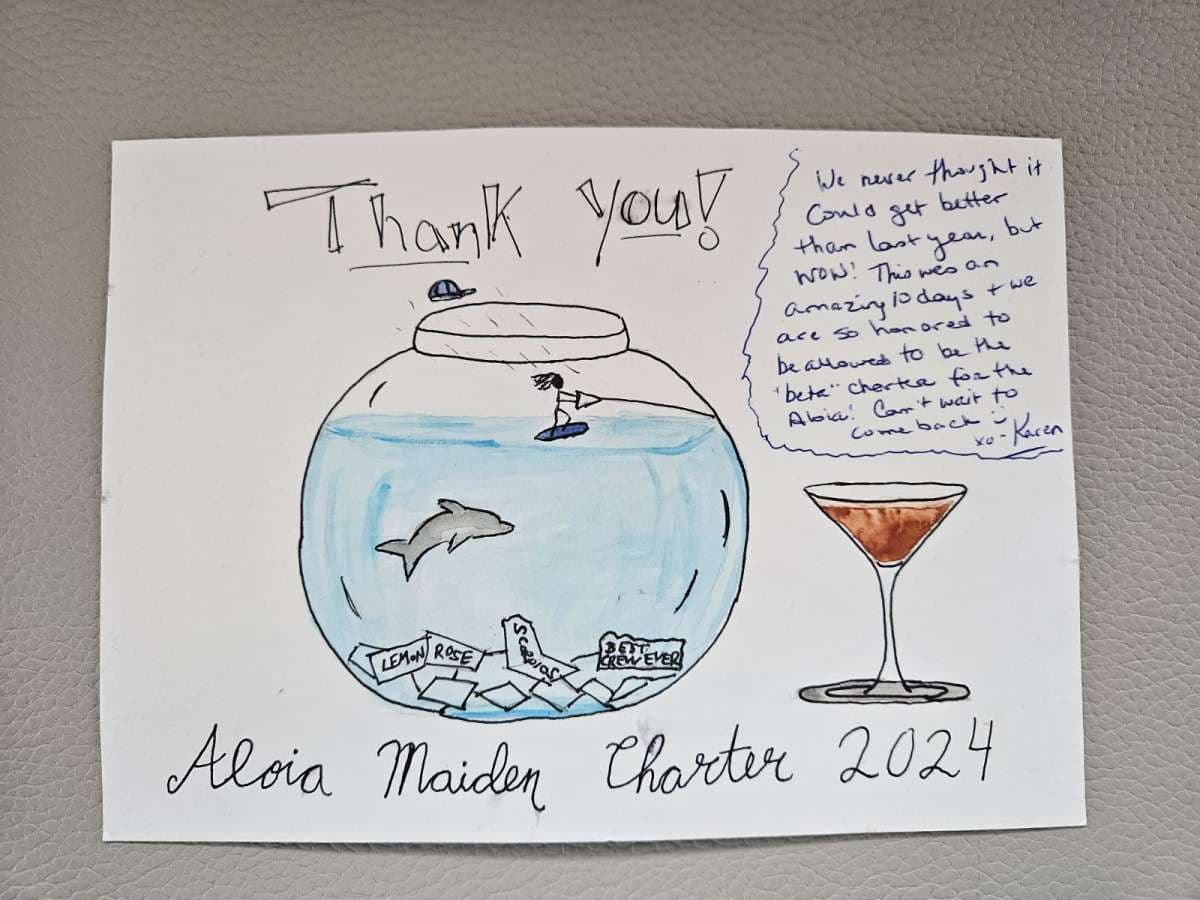 Thank you!
We never thought it
could get better
than last year, but
WOW! This was an
amazing 10 days + we
are so honored to
be allowed to be the
"beta" charter for the
Aloia! Can't wait to
come back
xo - Karen
LEMON ROSE
SCORPIOS
BEST
CREW EVER
Aloia Maiden Charter 2024